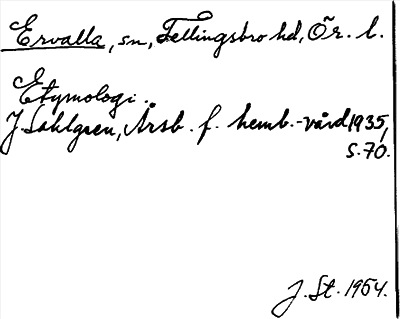 Ervalla, sn, Fellingsbro hd, Ör. l.
Etymologi.
J Sahlgren, Årsb. f. hemb.-vård 1935,
S.70.
J. St. 1954.